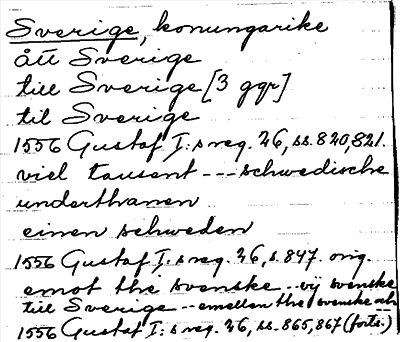 Sverige, konungarike
ått Sverige
till Sverige [3 ggr]
til Sverige
1556 Gustaf I:s reg. 26, ss. 820, 821.
viel tausent --- schwedische
underthanen
einen schweden
1556 Gustaf I:s reg. 26, s. 847. orig.
emot the svenske -- vij svenske
till Sverige -- emellan the svenske och
1556 Gustaf I:s reg. 26, ss. 865, 867 (forts.)